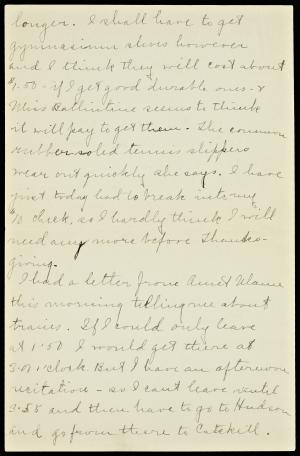 longer. I shall have to get
gymnasium shoes however
and I think they will cost about
.00 - if I get good durable ones - &
Miss Ballintine seems to think
it will pay to get them. The common
rubber-solid tennis slippers
wear out quickly she says. I have
just today had to break into my
$10 check, so I hardly think I will
need any more before Thanks-
giving.
I had a letter from Aunt
this morning telling me about
trains. If I could only leave
at 1:50 I would get there at
3:01 o'clock. But I have an afternoon
recitation - so I can't leave until
3:58 and then have to go to Hudson
and go from there to Catskill.